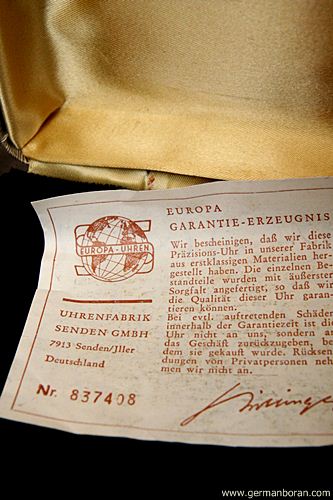 EUROPA
GARANTIE-ERZEUGNIS
EUROPA-UHREN
Wir bescheinigen, daß wir diese
Präzisions-Uhr in unserer Fabrik
aus erstklassigen Materialien her-
gestellt haben. Die einzelnen Be-
standteile wurden mit äußerster
Sorgfalt angefertigt, so daß wir
die Qualität dieser Uhr garan-
tieren können.
Bei evtl. auftretenden Schäden
innerhalb der Garantiezeit ist die
Uhr nicht an uns, sondern an
das Geschäft zurückzugeben, bei
dem sie gekauft wurde. Rücksen-
dungen von Privatpersonen neh-
men wir nicht an.
UHRENFABRIK
SENDEN GMBH
7913 Senden/Jller
Deutschland
Nr. 837408
www.germanboran.com